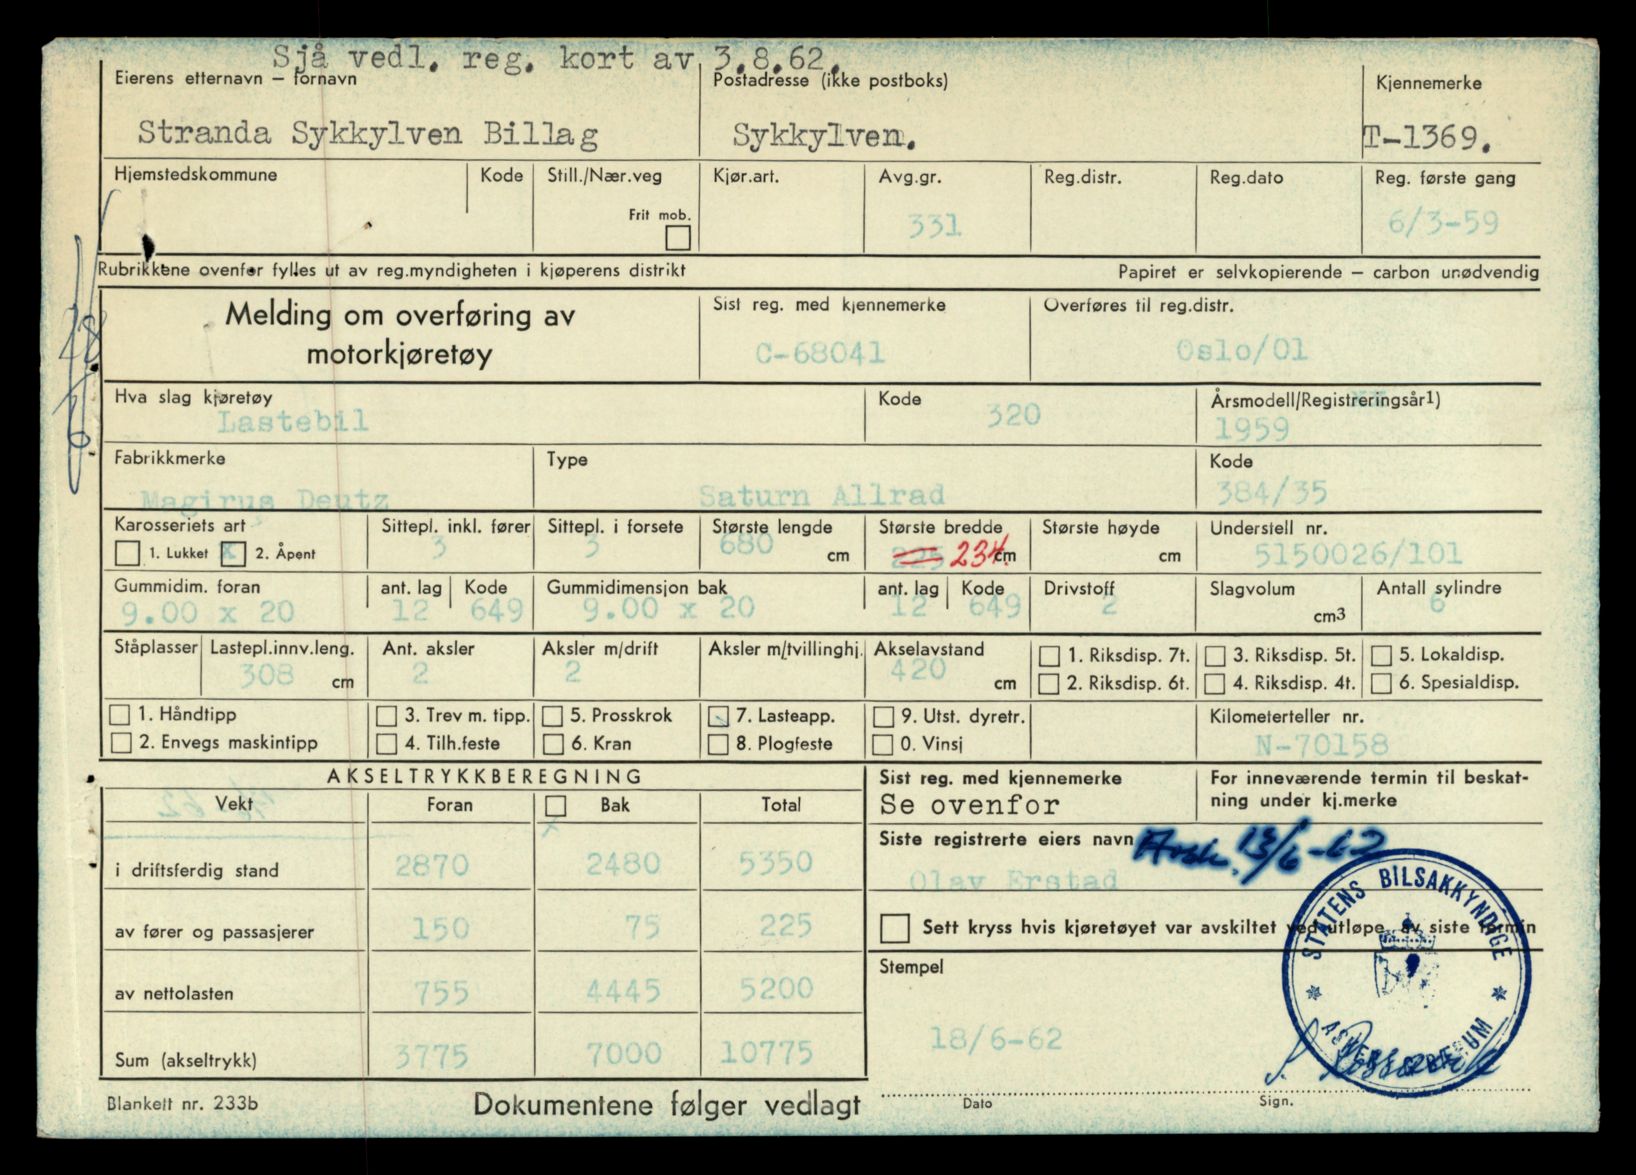 Sjå vedl. reg. kort av 3.8.62.
Eierens etternavn – fornavn
Postadresse (ikke postboks)
Kjennemerke
Stranda Sykkylven Billag
Sykkylven.
T-1369.
Hjemstedskommune
Kode
Still./Nær.veg
Kjør.art.
Avg.gr.
Reg.distr.
Reg.dato
Reg. første gang
Frit mob.
331
6/3-59
Rubrikkene ovenfor fylles ut av reg.myndigheten i kjøperens distrikt
Papiret er selvkopierende – carbon unødvendig
Melding om overføring av
motorkjøretøy
Sist reg. med kjennemerke
Overføres til reg.distr.
C-68041
Oslo/01
Hva slag kjøretøy
Kode
Årsmodell/Registreringsår1)
Lastebil
320
1959
Fabrikkmerke
Type
Kode
Magirus Deutz
Saturn Allrad
384/35
Karosseriets art
Sittepl. inkl. fører
Sittepl. i forsete
Største lengde
Største bredde
Største høyde
Understell nr.
1. Lukket x 2. Åpent
3
3
680 cm
225 234. cm
cm
5150026/101
Gummidim. foran
ant. lag
Kode
Gummidimensjon bak
ant. lag
Kode
Drivstoff
Slagvolum
Antall sylindre
9.00 x 20
12
649
9.00 x 20
12
649
2
cm3
6
Ståplasser
Lastepl.innv.leng.
Ant. aksler
Aksler m/drift
Aksler m/tvillinghj.
Akselavstand
1. Riksdisp. 7t.
3. Riksdisp. 5t.
5. Lokaldisp.
308 cm
2
2
420 cm
2. Riksdisp. 6t.
4. Riksdisp. 4t.
6. Spesialdisp.
1. Håndtipp
3. Trev m. tipp.
5. Prosskrok
7. Lasteapp.
9. Utst. dyretr.
Kilometerteller nr.
2. Envegs maskintipp
4. Tilh.feste
6. Kran
8. Plogfeste
0. Vinsj
N-70158
AKSELTRYKKBEREGNING
Sist reg. med kjennemerke
For inneværende termin til beskat-
ning under kj.merke
Vekt
Foran
Bak
Total
Se ovenfor
x
Siste registrerte eiers navn
13/6-62
i driftsferdig stand
2870
2480
5350
Olav Erstad
av fører og passasjerer
150
75
225
Sett kryss hvis kjøretøyet var avskiltet ved utløpe av siste termin
av nettolasten
755
4445
5200
Stempel
STATENS BILSAKKYNDIGE
ASKER OG BÆRUM
Sum (akseltrykk)
3775
7000
10775
18/6-62
Blankett nr. 233b
Dokumentene følger vedlagt
Dato
Sign.